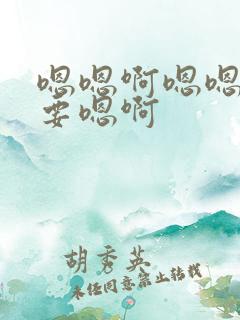 嗯嗯啊嗯嗯
要嗯啊
胡秀英
未经同意禁止转载